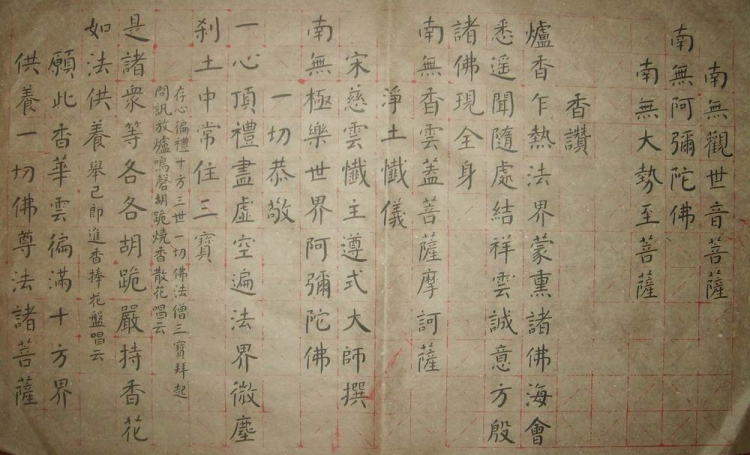 南無觀世音菩薩
南無阿彌陀佛
南無大勢至菩薩
香讚
爐香乍熱法界蒙熏諸佛海會
悉遥聞隨處結祥雲誠意方殷
諸佛現全身
南無香雲蓋菩薩摩訶薩
淨土懺儀
宋慈雲懺主遵式大師撰
南無極樂世界阿彌陀佛
一切恭敬
一心頂禮盡虛空遍法界微塵
刹土中常住三寶
存心徧禮十方三世一切佛法僧三寶拜起
問訊放爐鳴磬胡跪燒香散花唱云
是諸衆等各各胡跪嚴持香花
如法供養舉已即進香捧花盤唱云
願此香華雲徧滿十方界
供養一切佛尊法諸菩薩